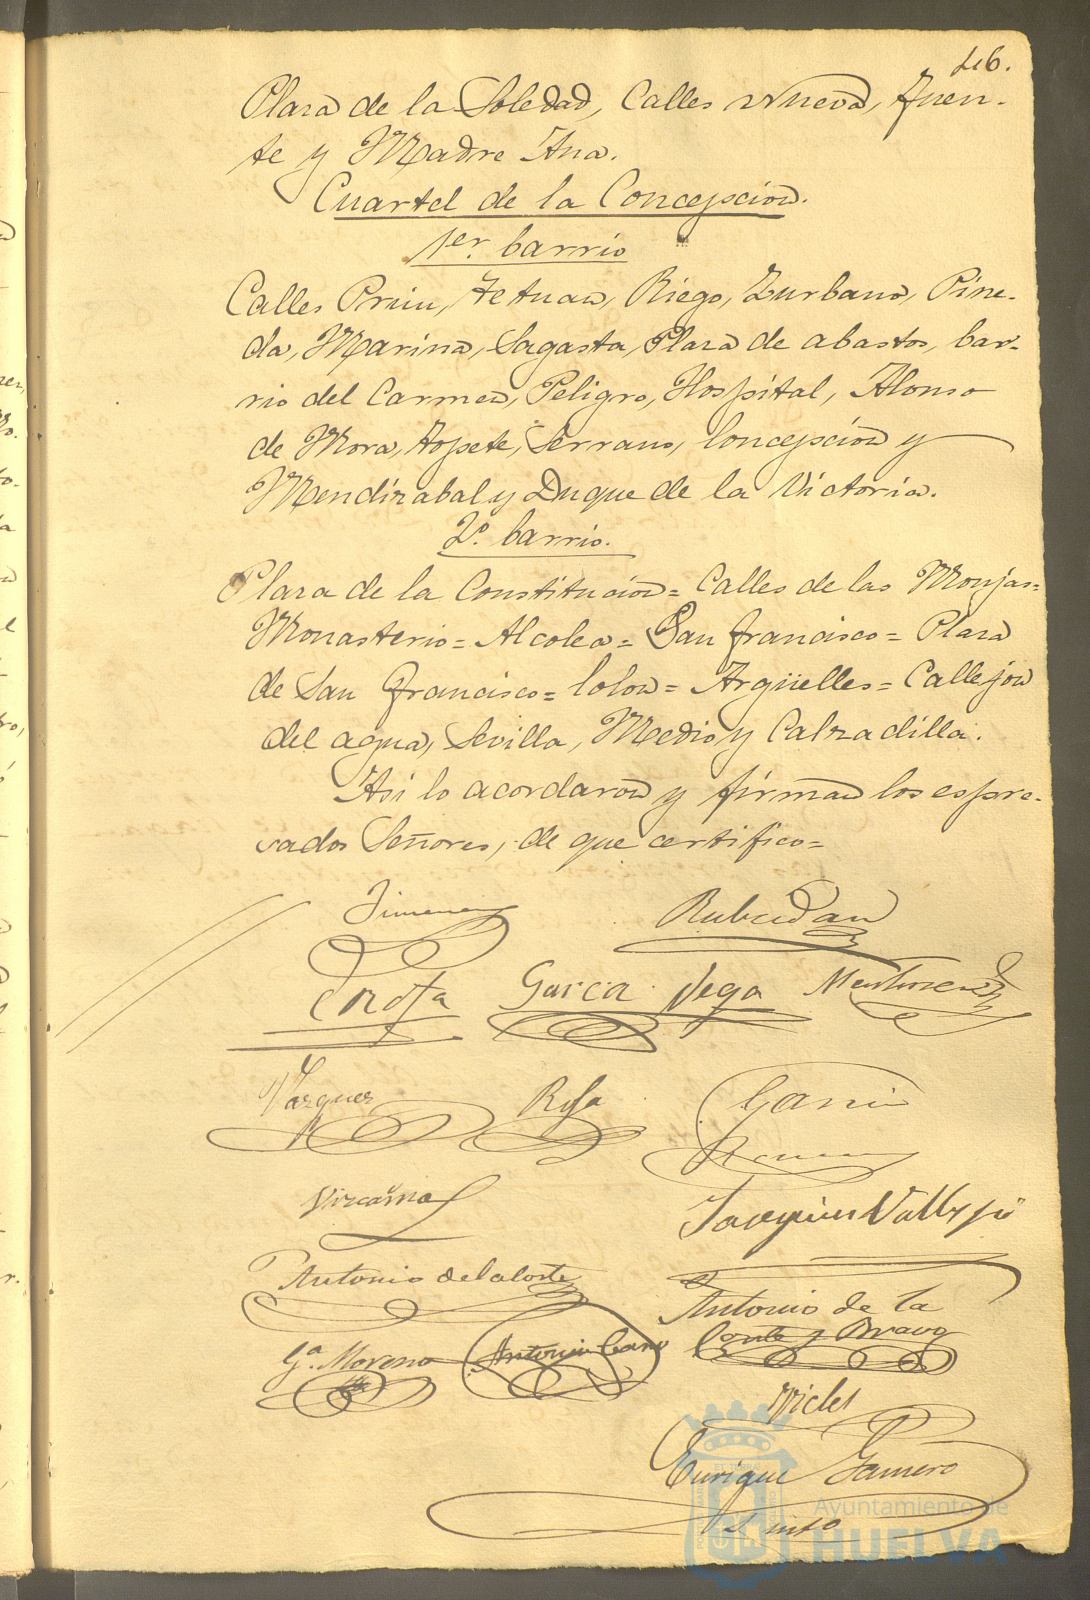 46.
Plaza de la Soledad, Calles Nueva, Fuen-
te y Madre Ana.
Cuartel de la Concepcion.
1er. barrio
Calles Prim, Tetuan, Riego, Zurbano, Pine-
da, Marina, Sagasta, Plaza de abastos, bar-
rio del Carmen, Peligro, Hospital, Alonso
de Mora, Topete, Serrano, Concepcion y
Mendizabal y Duque de la Victoria.
2º. barrio.
Plaza de la Constitucion= Calles de las Monjas=
Monasterio= Alcolea= San Francisco= Plaza
de San Francisco= Colon= Argüelles= Callejon
del agua, Sevilla, Medio y Calzadilla.
Asi lo acordaron y firman los espre-
sados Señores, de que certifico=
Jimenez
Garcia Vega
Vazquez
Vizcaina
Joaquin Vallejo
Antonio de la Corte
Antonio de la
Corte y Bravo
Gª. Moreno Antonio Cano
Enrique Gamero
Ayuntamiento de
HUELVA